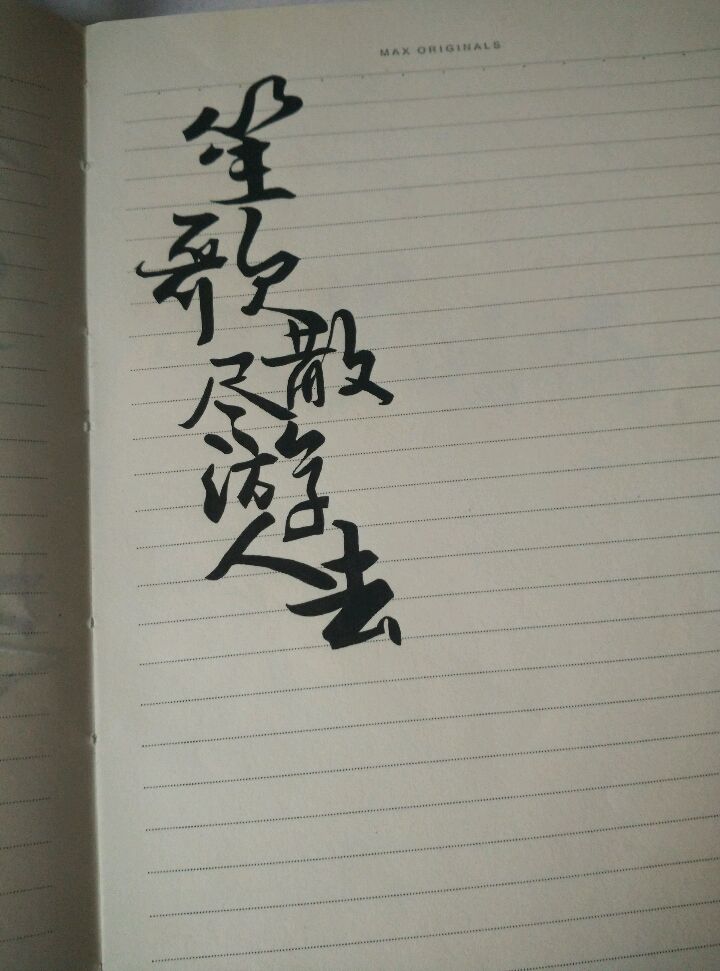 MAX ORIGINALS
笙歌散尽游人去